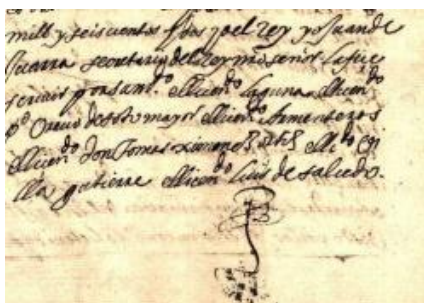 mill y seiscientos fdos yo el Rey yo Juan de
secretario del Rey nro señor la fice
por su man.do el licen.do laguna el licen.do
p.o de sotomayor el licen.do Armenteros
el licen.do don Tomas ximenez ortiz el li.do egi
lla gutierre el licen.do luis de salcedo.